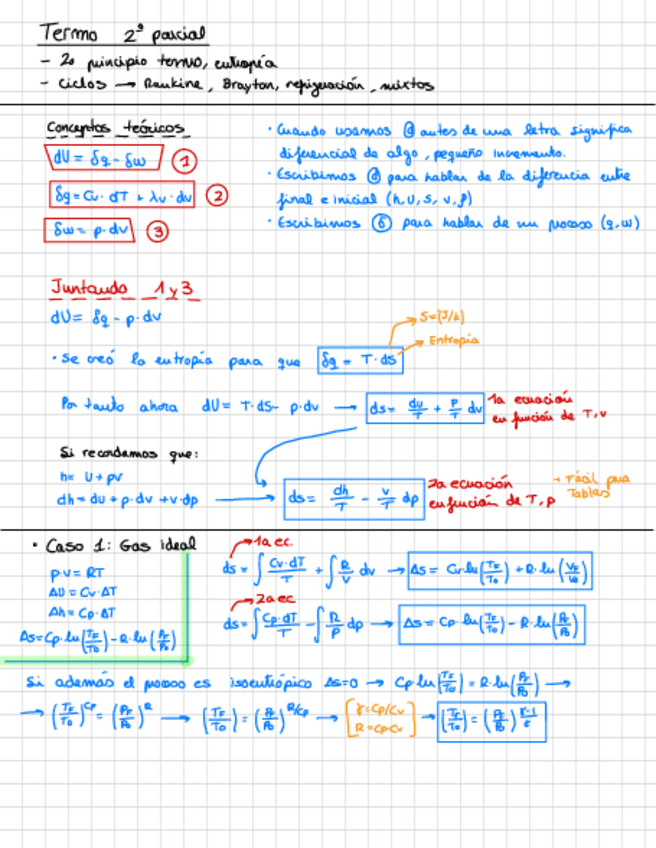 Termo 2º parcial
- 2o principio termo, entropía
- ciclos → Rankine, Brayton, refrigeración, mixtos
Conceptos teóricos
dU = δq - δw ①
δq = Cv · dT + λv · dv ②
δw = p · dv ③
· Cuando usamos ⓓ antes de una letra significa
diferencial de algo, pequeño incremento.
· Escribimos ⓓ para hablar de la diferencia entre
final e inicial (h, u, s, v, p)
· Escribimos ⓢ para hablar de un proceso (q, w)
Juntando 1 y 3
dU = δq - p · dv
· Se creó la entropía para que δq = T · ds
S = [J/k]
Entropía
Por tanto ahora dU = T · dS - p · dv → ds = du/T + P/T dv
1a ecuación
en función de T, v
Si recordamos que:
h = U + pv
dh = du + p · dv + v · dp → ds = dh/T - v/T dp
2a ecuación
en función de T, p
→ Fácil para
Tablas
· Caso 1: Gas ideal
p · v = RT
ΔU = Cv · ΔT
Δh = Cp · ΔT
Δs = Cp · ln(TF/To) - R · ln(PF/Po)
1a ec.
ds = ∫ Cv · dT/T + ∫ R/V dv → Δs = Cv · ln(TF/To) + R · ln(VF/Vo)
2a ec
ds = ∫ Cp · dT/T - ∫ R/P dp → Δs = Cp ln(TF/To) - R · ln(PF/Po)
Si además el proceso es isoentrópico Δs=0 → Cp ln(TF/To) = R · ln(PF/Po) →
→ (TF/To)^Cp = (PF/Po)^R → (TF/To) = (PF/Po)^R/Cp → [γ = Cp/Cv R = Cp-Cv] → (TF/To) = (PF/Po)^γ-1/γ